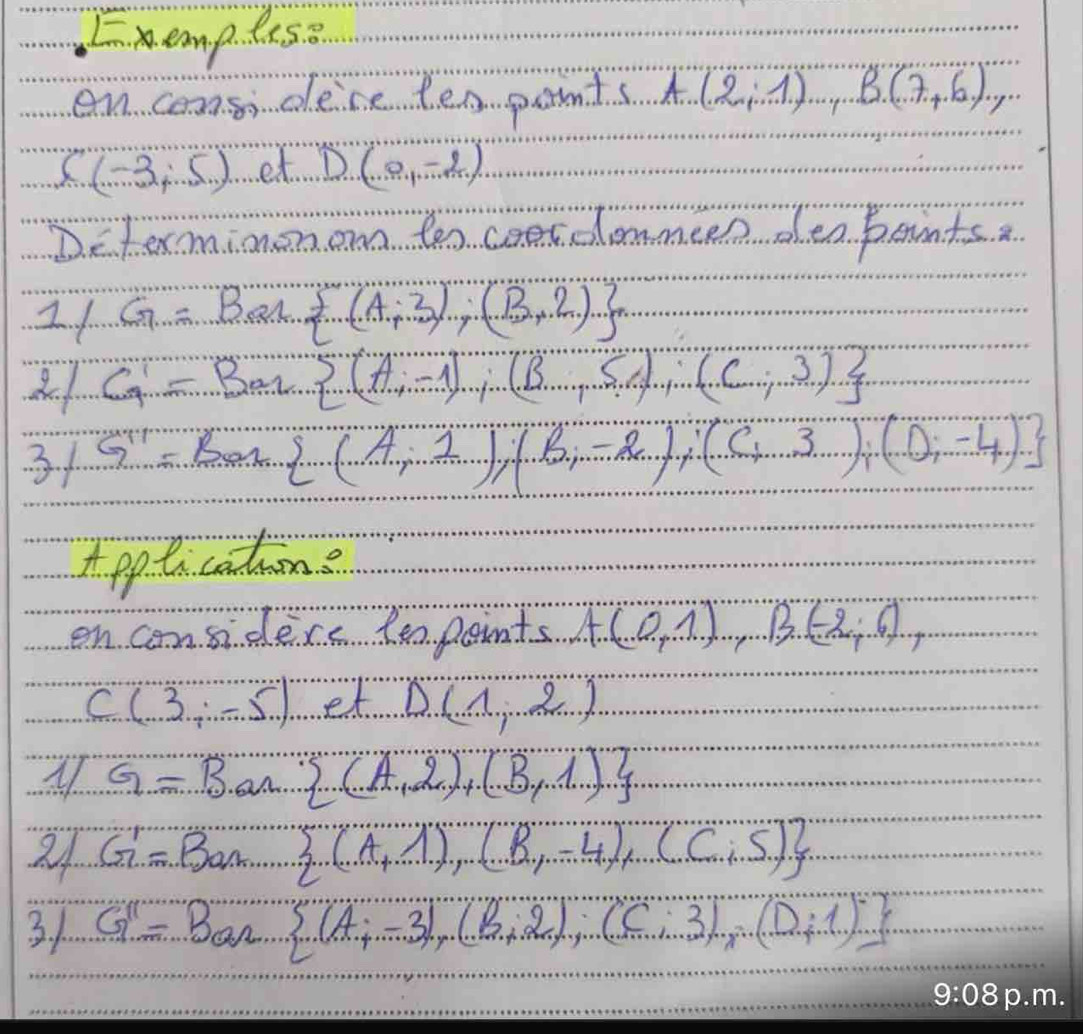 Exemples:
on considère les points A(2;1), B(7,6),
C(-3;5) et D(0,-2)
Déterminonons les coordonnées des points:
1/ G = Bar {(A;3);(B,2)}
2/ G' = Bar {(A;-1);(B;5);(C;3)}
3/ G'' = Bar {(A;1);(B;-2);(C;3);(D;-4)}
Application:
on considère les points A(0,1), B(-2;6),
C(3;-5) et D(1;2)
1/ G = Bar {(A,2),(B,1)}
2/ G' = Bar {(A,1),(B,-4),(C;5)}
3/ G'' = Bar {(A;-3),(B;2);(C;3),(D;1)}
9:08 p.m.